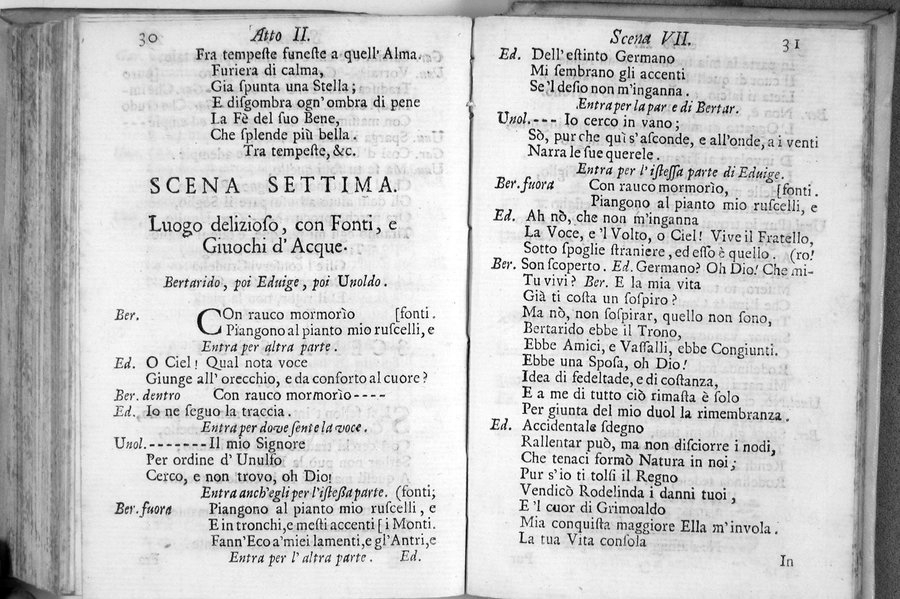 30 Atto II.
Fra tempeſte funeſte a quell' Alma.
Furiera di calma,
Gia ſpunta una Stella;
E diſgombra ogn' ombra di pene
La Fè del ſuo Bene,
Che ſplende più bella.
Tra tempeſte, &c.
SCENA SETTIMA.
Luogo delizioſo, con Fonti, e
Giuochi d' Acque.
Bertarido, poi Eduige, poi Unoldo.
Ber. COn rauco mormorìo [fonti.
Piangono al pianto mio ruſcelli, e
Entra per altra parte.
Ed. O Ciel! Qual nota voce
Giunge all' orecchio, e da conforto al cuore?
Ber. dentro Con rauco mormorìo----
Ed. Io ne ſeguo la traccia.
Entra per dove ſente la voce.
Unol.-------Il mio Signore
Per ordine d' Unulfo
Cerco, e non trovo, oh Dio!
Entra anch'egli per l'iſteſſa parte. (fonti;
Ber. fuora Piangono al pianto mio ruſcelli, e
E in tronchi, e meſti accenti [i Monti.
Fann' Eco a'miei lamenti, e gl' Antri, e
Entra per l' altra parte. Ed.
Scena VII. 31
Ed. Dell' eſtinto Germano
Mi ſembrano gli accenti
Se 'l deſio non m'inganna.
Entra per la par e di Bertar.
Unol.--- Io cerco in vano;
Sò, pur che quì s'aſconde, e all'onde, a i venti
Narra le ſue querele.
Entra per l'iſteſſa parte di Eduige.
Ber. fuora Con rauco mormorìo, [fonti.
Piangono al pianto mio ruſcelli, e
Ed. Ah nò, che non m'inganna
La Voce, e 'l Volto, o Ciel! Vive il Fratello,
Sotto ſpoglie ſtraniere, ed eſſo è quello. (ro!
Ber. Son ſcoperto. Ed. Germano? Oh Dio! Che mi-
Tu vivi? Ber. E la mia vita
Già ti coſta un ſoſpiro?
Ma nò, non ſoſpirar, quello non ſono,
Bertarido ebbe il Trono,
Ebbe Amici, e Vaſſalli, ebbe Congiunti.
Ebbe una Spoſa, oh Dio!
Idea di fedeltade, e di coſtanza,
E a me di tutto ciò rimaſta è ſolo
Per giunta del mio duol la rimembranza.
Ed. Accidentale ſdegno
Rallentar può, ma non diſciorre i nodi,
Che tenaci formò Natura in noi;
Pur s'io ti tolſi il Regno
Vendicò Rodelinda i danni tuoi,
E 'l cuor di Grimoaldo
Mia conquiſta maggiore Ella m'invola.
La tua Vita conſola
In